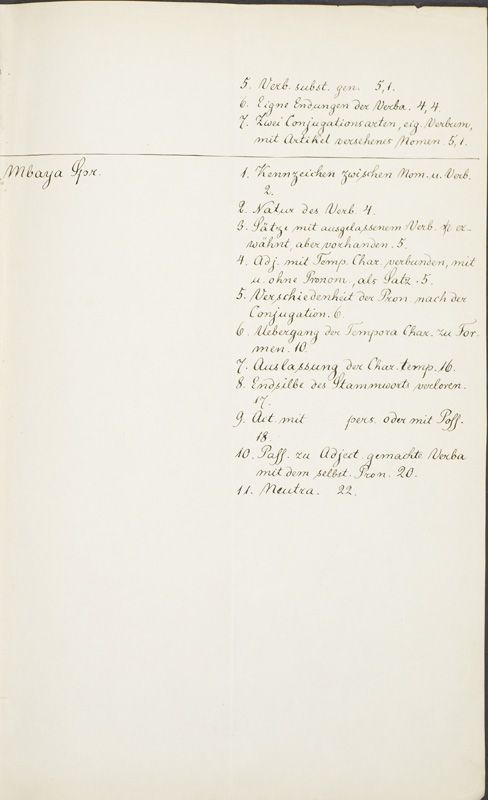 5. Verb. subst. gen. 5,1.
6. Eigne Endungen der Verba. 4,4.
7. Zwei Conjugationsarten, eig. Verbum,
mit Artikel versehenes Nomen. 5,1.
Mbaya Spr.
1. Kennzeichen zwischen Nom. u. Verb.
2.
2. Natur des Verb. 4.
3. Sätze mit ausgelassenem Verb. er-
wähnt, aber vorhanden. 5.
4. Adj. mit Temp. Char. verbunden, mit
u. ohne Pronom., als Satz. 5.
5. Verschiedenheit der Pron. nach der
Conjugation. 6.
6. Uebergang der Tempora Char. zu For-
men. 10.
7. Auslassung der Char. temp. 16.
8. Endsilbe des Stammworts verloren.
17.
9. Act. mit pers. oder mit Poss.
18.
10. Pass. zu Adject. gemachte Verba
mit dem selbst. Pron. 20.
11. Neutra. 22.